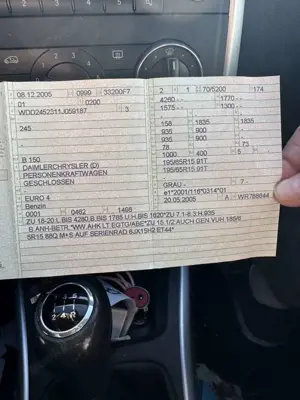 08.12.2005 0999 33200F7
01 0200
WDD2452311J059187 3
245
B 150
DAIMLERCHRYSLER (D)
PERSONENKRAFTWAGEN
GESCHLOSSEN
EURO 4
Benzin
0001 0462 1498
2 1 70/5200 174
4280 1770
1575 1300
158 1835 1835
935 900
935 900
78 73
1000 400 5
195/65R15 91T
195/65R15 91T
GRAU 7
e1*2001/116*0314*01
20.05.2005 A WR786844
ZU 18-20:L BIS 4280;B BIS 1785;U.H BIS 1620*ZU 7.1-8.3:H.935
B.ANH-BETR.*WW AHK LT EGTG/ABE*ZU 15.1/2 AUCH GEN VUH 185/6
5R15 88Q M+S AUF SERIENRAD 6JX15H2 ET44*
2 4 R